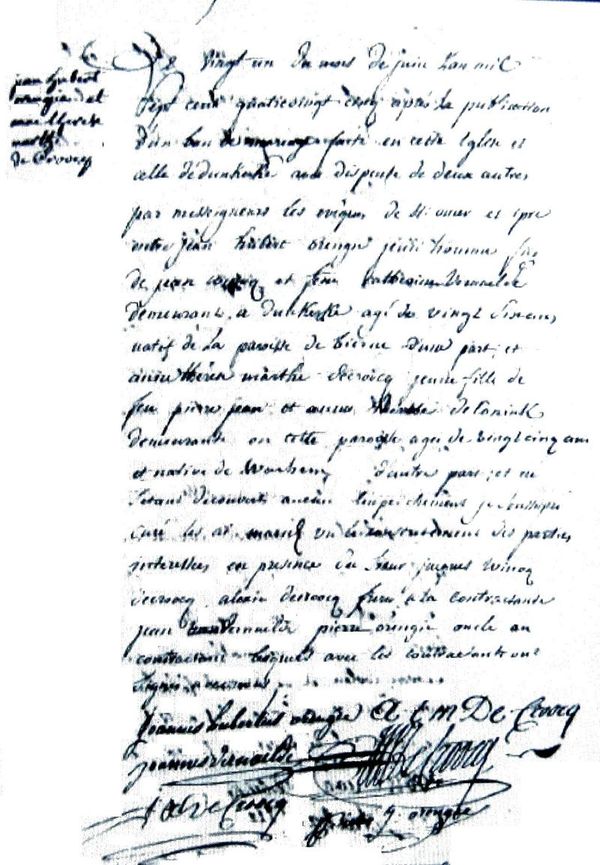 jean hubert
orengie et
anne therese
marthe
de Croocq
Le vingt un du mois de juin l'an mil
sept cent quatrevingt cinq après la publication
d'un ban de mariage faite en cette Eglise et
celle de dunkerke avec dispense de deux autres
par messeigneurs les evêques de St omer et ipre
entre jean hubert orengie jeune homme fils
de jean et feue Catherine Vermeulde
demeurant a dunkerke agé de vingt six ans
natif de la paroisse de bierne d'une part, et
anne therese marthe decroocq jeune fille de
feu pierre jean et
demeurante en cette paroisse agée de vingt cinq ans
et native de Warhem d'autre part; et ne
s'etant découvert aucun empechement je soussigné
curé les ai mariés vu le consentement des parties
interessées en presence du sieur jacques winocq
decroocq alexis decroocq frere a la contractante
jean vermeulde pierre orengie oncle au
contractant lesquels avec les contractants ont
signés
Joannes hubertus orengie A t m De Croocq
joannes vermeulde De Croocq
A De Crocq
orengie